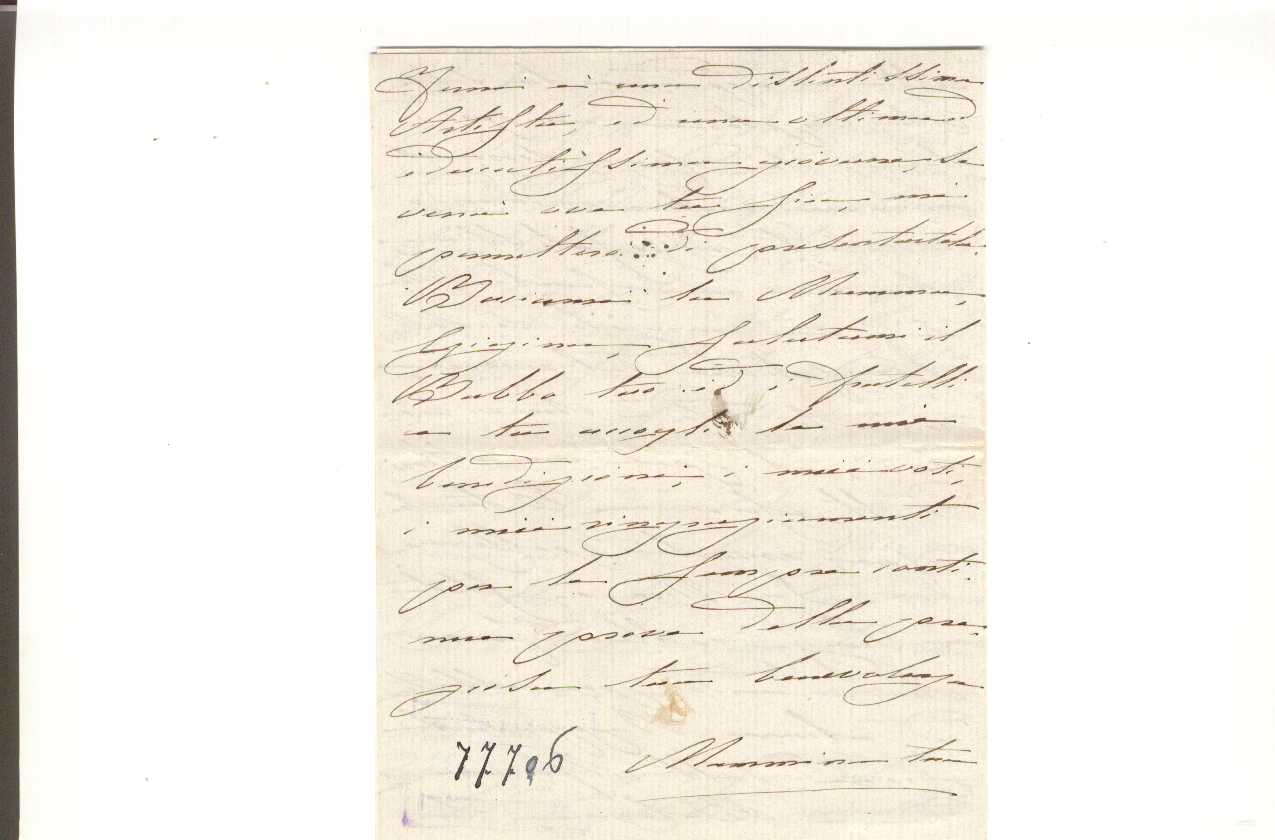 è una distintissima
Artista, ed una ottima ed
educatissima giovane, se
verrà ove tu sia, mi
permetterai di presentartela.
Baciami la Mamma,
Gigina, salutami il
Babbo tuo ed i fratelli
e tu accogli le mie
benedizioni, i miei voti,
i miei ringraziamenti
per le sempre conti-
nue prove della pre-
giata tua benevolenza
Mammina tua
77706